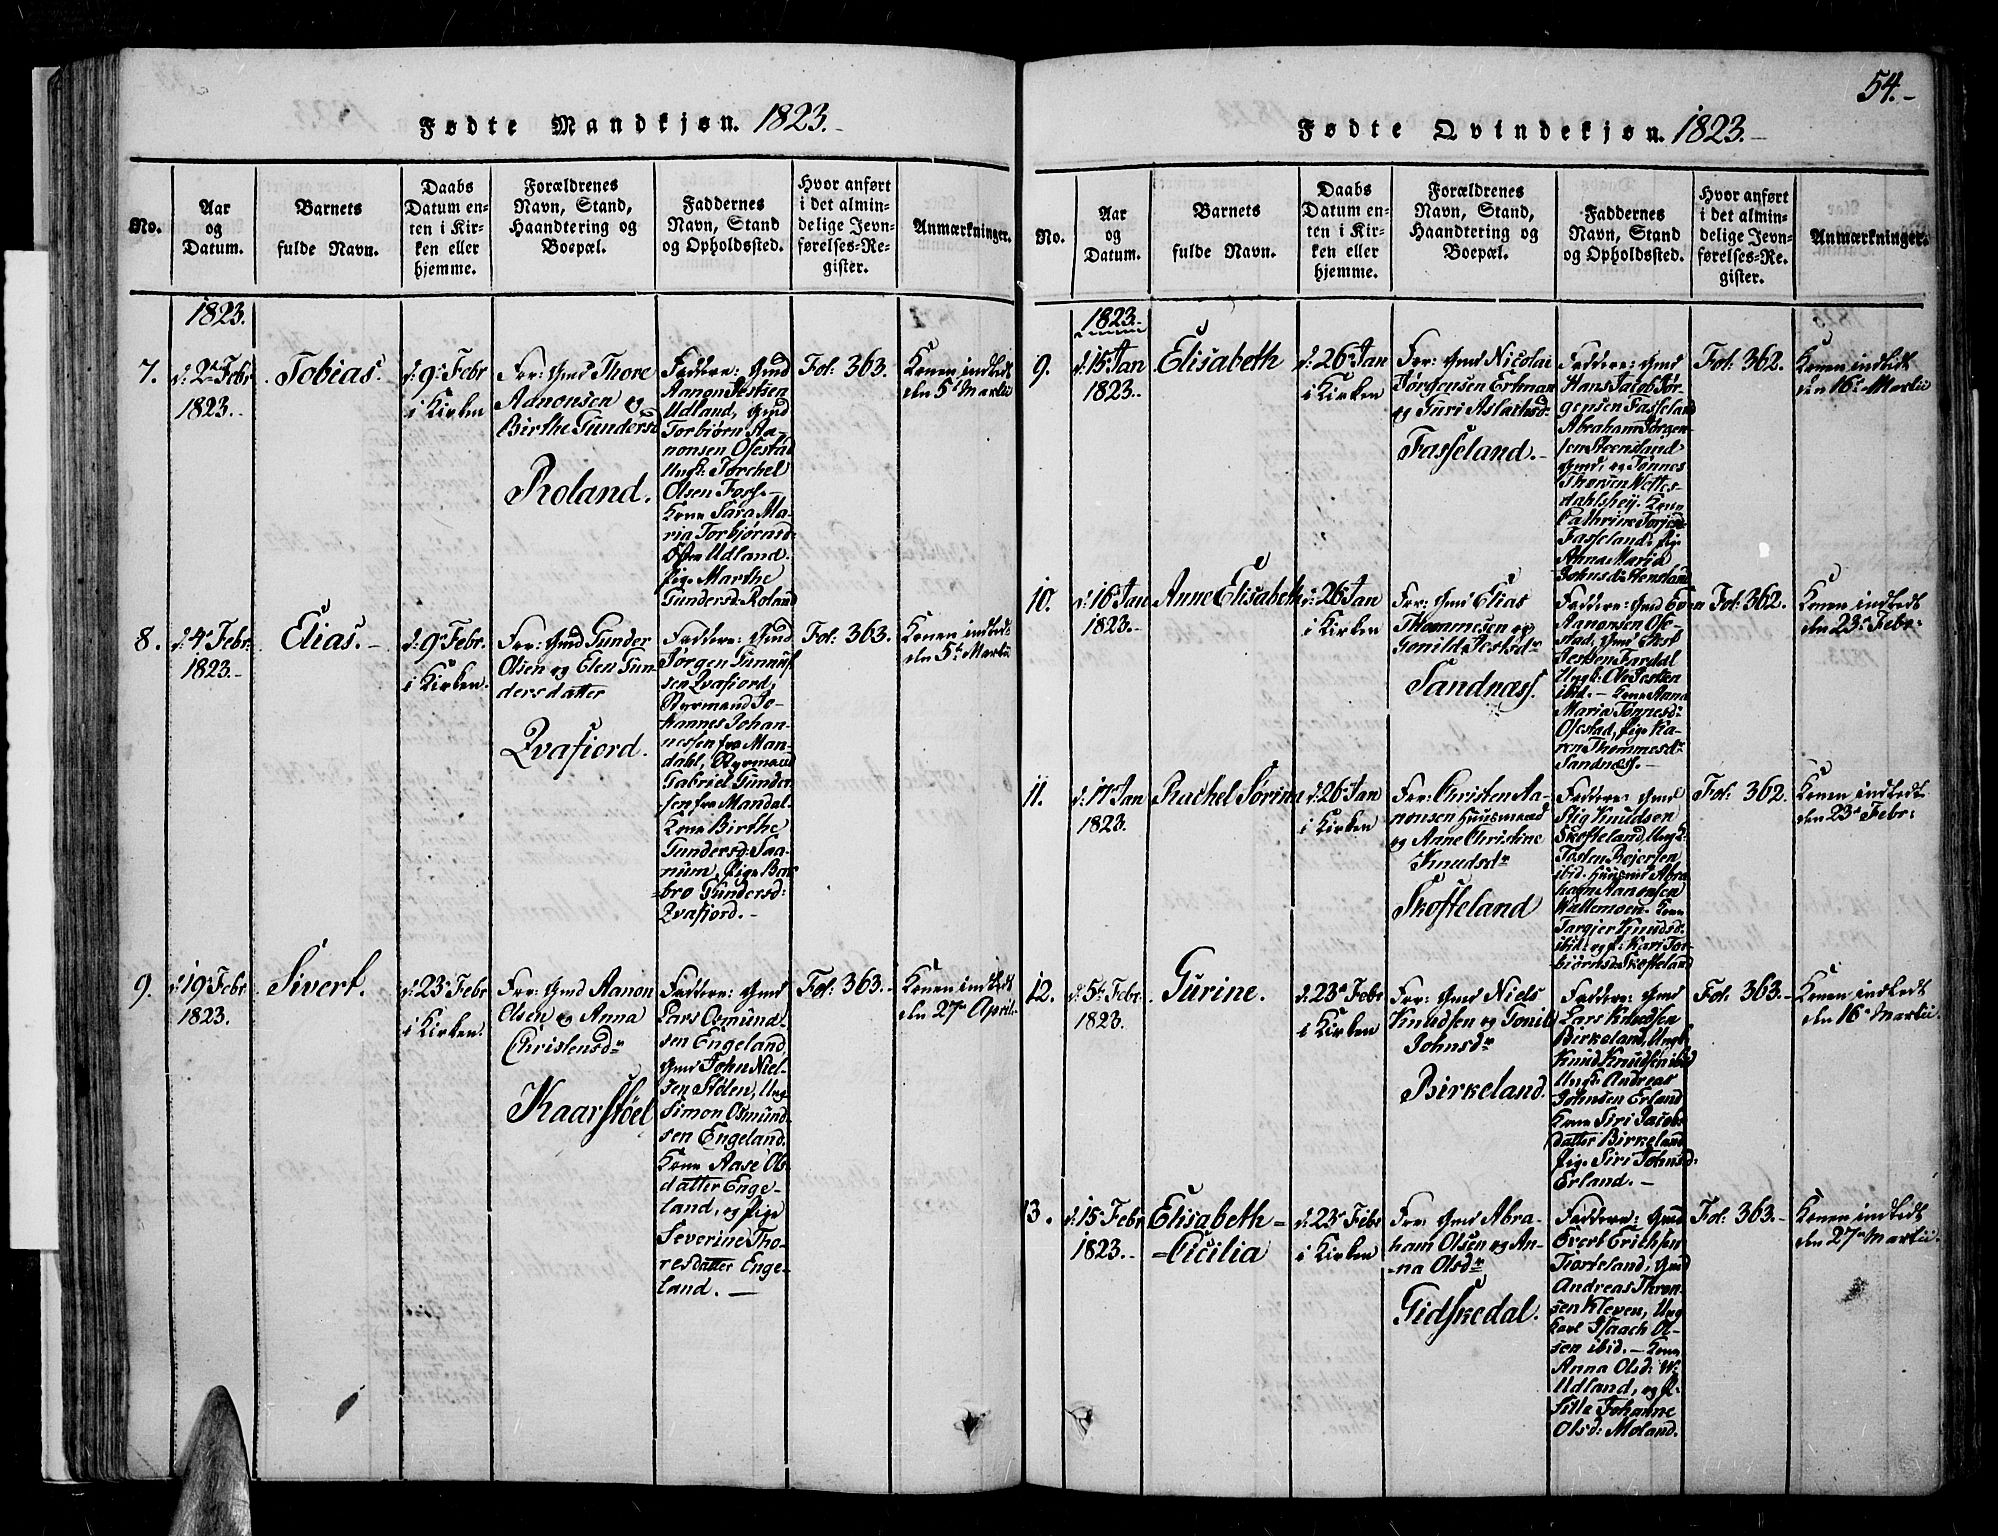 Fødte Mandkjøn. 1823.-
No.
Aar
og
Datum.
Barnets
fulde Navn.
Daabs
Datum en-
ten i Kir-
ken eller
hjemme.
Forældrenes
Navn, Stand,
Haandtering og
Boepæl.
Faddernes
Navn, Stand
og Opholdssted.
Hvor anført
i det almin-
delige Jevn-
førelses-Re-
gister.
Anmærkninger.
1823.
7.
d: 2de Febr
1823.-
Tobias.
d: 9de Febr
i Kirken
For: Gmd Thore
Aanonsen og
Birthe Gundersd
Roland.
Faddere: Gmd
Aanon Jestsen
Udland, Gmd
Torbiørn Aa-
nonsen Ofestad
Ungk: Torchel
Olsen Foss.-
Kone Sara Ma-
ria Torbjørnsd:
Udland.
Pige Marthe
Gundersd: Roland
Fol: 363.
Konen indledt
den 5te Martii
8.
d: 4de Febr.
1823.-
Elias.-
d: 9de Febr.
i Kirken.
For: Gmd Gunder
Olsen og Elen Gun-
dersdatter
Qvafiord.
Faddere: Gmd
Jørgen Gunnuf
sen Qvafiord,
Styrmand Jo-
hannes Johan-
nessen fra Man-
dahl, Styrmand
Gabriel Gunder-
sen fra Mandal.
Kone Birthe
Gundersd: Saa-
num, Pige Bar
bro Gundersd:
Qvafiord.-
Fol: 363.
Konen indledt
den 5te Martii
9.
d: 19de Febr.
1823.
Sivert.
d: 23de Febr
i Kirken.
For: Gmd Aanon
Olsen og Anna
Christensdr
Kaarstøel
Faddere: Gmd
Lars Osmund-
sen Engeland,
Gmd John Niel-
sen Stølen, Ung
Simon Osmund
sen Engeland.
Kone Aase Ols-
datter Enge-
land, og Pige
Severine Tho-
resdatter Enge-
land.-
Fol: 363.-
Konen indledt
den 27de Aprili
54.-
Fødte Qvindekjøn. 1823.-
No.
Aar
og
Datum.
Barnets
fulde Navn.
Daabs
Datum en-
ten i Kir-
ken eller
hjemme.
Forældrenes
Navn, Stand,
Haandtering og
Boepæl.
Faddernes
Navn, Stand
og Opholdssted.
Hvor anført
i det almin-
delige Jevn-
førelses-Re-
gister.
Anmærkninger.
1823.-
9.
d: 15de Jan
1823.-
Elisabeth
d: 26de Jan
i Kirken
For: Gmd Nicolai
Jørgensen Ertman
og Guri Aslachsd:
Fasseland.-
Faddere: Gmd
Hans Jacob Jør-
gensen Fasseland
Abraham Jørgen-
sen Steensland
Gmd, og Tønnes
Thorsen Vettes-
dahlsheij. Kone
Cathrine Torjesd
Fasseland, Pige
Anna Maria
Johnsd:
Fol: 362.
Konen indledt
den 16de Martii
10.
d: 16de Jan
1823.-
Anne Elisabeth
d: 26de Jan
i Kirken
For: Gmd Elias
Thommesen og
Gonild Jestsdr
Sandnæss.
Faddere: Gmd Even
Aanonsen Ofe-
stad, Gmd Jest
Jestsen Fardal
Ungk: Ole Jestsen
ibid.- Kone Anna
Maria Tønnesd:
Ofestad, Pige Ka-
ren Thommesdr
Sandnæss.-
Fol: 362.
Konen indledt
den 23de Febr:
11.
d: 17de Jan
1823.
Rachel Sørine
d: 26de Jan
i Kirken
For: Christen Aa-
nonsen Huusmand
og Anne Christine
Knudsdr
Skofteland
Faddere: Gmd
Stig Knudsen
Skofteland, Ungk:
Tosten Reiersen
ibid. Huusmd Abra
ham Aanonsen
Vallemoen. Kone
Targier Knudsd:
ibid: og P: Kari Tor-
biørnsd: Skofteland
Fol: 362.
Konen indledt
den 23de Febr:
12.
d: 5te Febr.
1823.
Gurine.
d: 23de Febr
i Kirken
For: Gmd Niels
Knudsen og Gonild
Johnsdr
Birkeland.
Faddere: Gmd
Lars Knudsen
Birkeland, Ungk
Knud Knudsen ibid
Ungk: Andreas
Johnsen Erland
Kone Siri Jacobs
datter Birkeland
Pige Siri Johnsd:
Erland.-
Fol: 363.-
Konen indledt
den 16de Martii.
13.
d: 15 Febr
1823.-
Elisabeth=
=Cicilia
d: 23de Febr
i Kirken
For: Gmd Abra-
ham Olsen og An-
na Olsdr
Gidskedal.
Faddere: Gmd
Evert Erichsen
Tiorteland, Gmd
Andreas Thron-
sen Kleven, Ung
Karl Isaach Ol-
sen ibid.- Kone
Anna Olsd: W:
Udland, og P:
Sille Johanne
Olsd: Moland.
Fol: 363.-
Konen indledt
den 27de Martii.